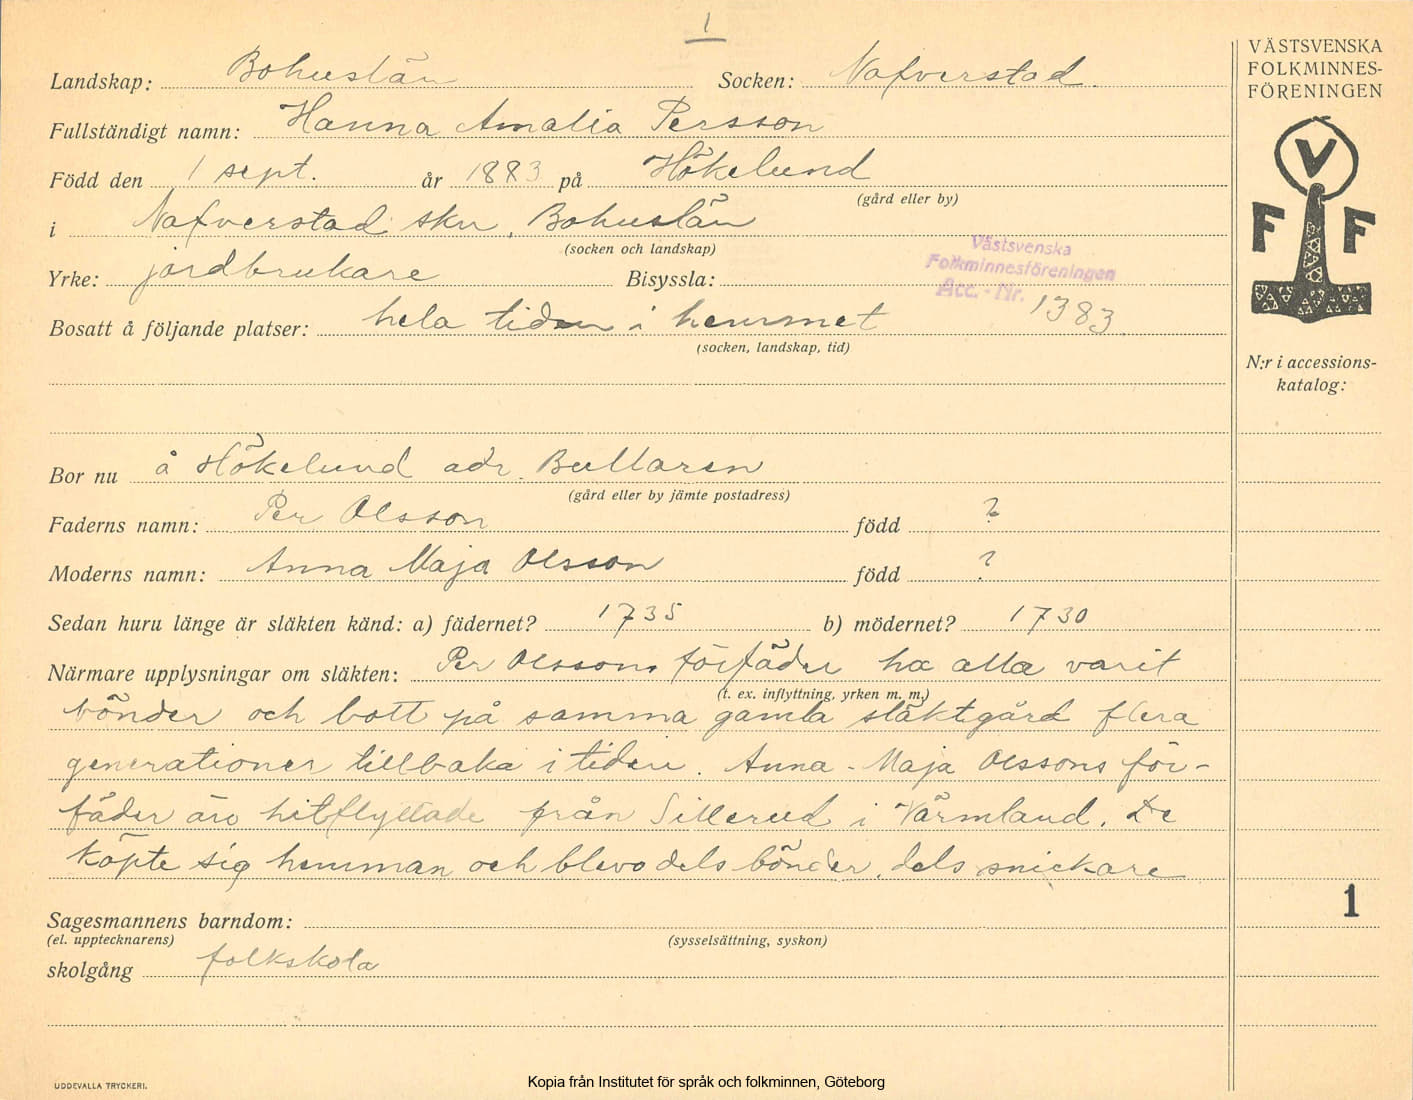 1
Landskap: Bohuslän Socken: Nafverstad.
Fullständigt namn: Hanna Amalia Persson
Född den 1 sept. år 1883 på Hökelund
(gård eller by)
i Nafverstad skn, Bohuslän
(socken och landskap)
Yrke: jordbrukare Bisyssla:
Bosatt å följande platser: hela tiden i hemmet
(socken, landskap, tid)
Västsvenska
Folkminnesföreningen
Acc. - Nr. 1383
Bor nu å Hökelund adr. Bullaren
(gård eller by jämte postadress)
Faderns namn: Per Olsson född ?
Moderns namn: Anna Maja Olsson född ?
Sedan huru länge är släkten känd: a) fädernet? 1735 b) mödernet? 1730
Närmare upplysningar om släkten: Per Olssons förfäder ha alla varit
(t. ex. inflyttning, yrken m. m.)
bönder och bott på samma gamla släktgård flera
generationer tillbaka i tiden. Anna-Maja Olssons för-
fäder äro hitflyttade från Sillerud i Värmland. De
köpte sig hemman och blevo dels bönder, dels snickare
Sagesmannens barndom:
(el. upptecknarens) (sysselsättning, syskon)
skolgång folkskola
UDDEVALLA TRYCKERI.
VÄSTSVENSKA
FOLKMINNES-
FÖRENINGEN
V
F F
N:r i accessions-
katalog:
1
Kopia från Institutet för språk och folkminnen, Göteborg